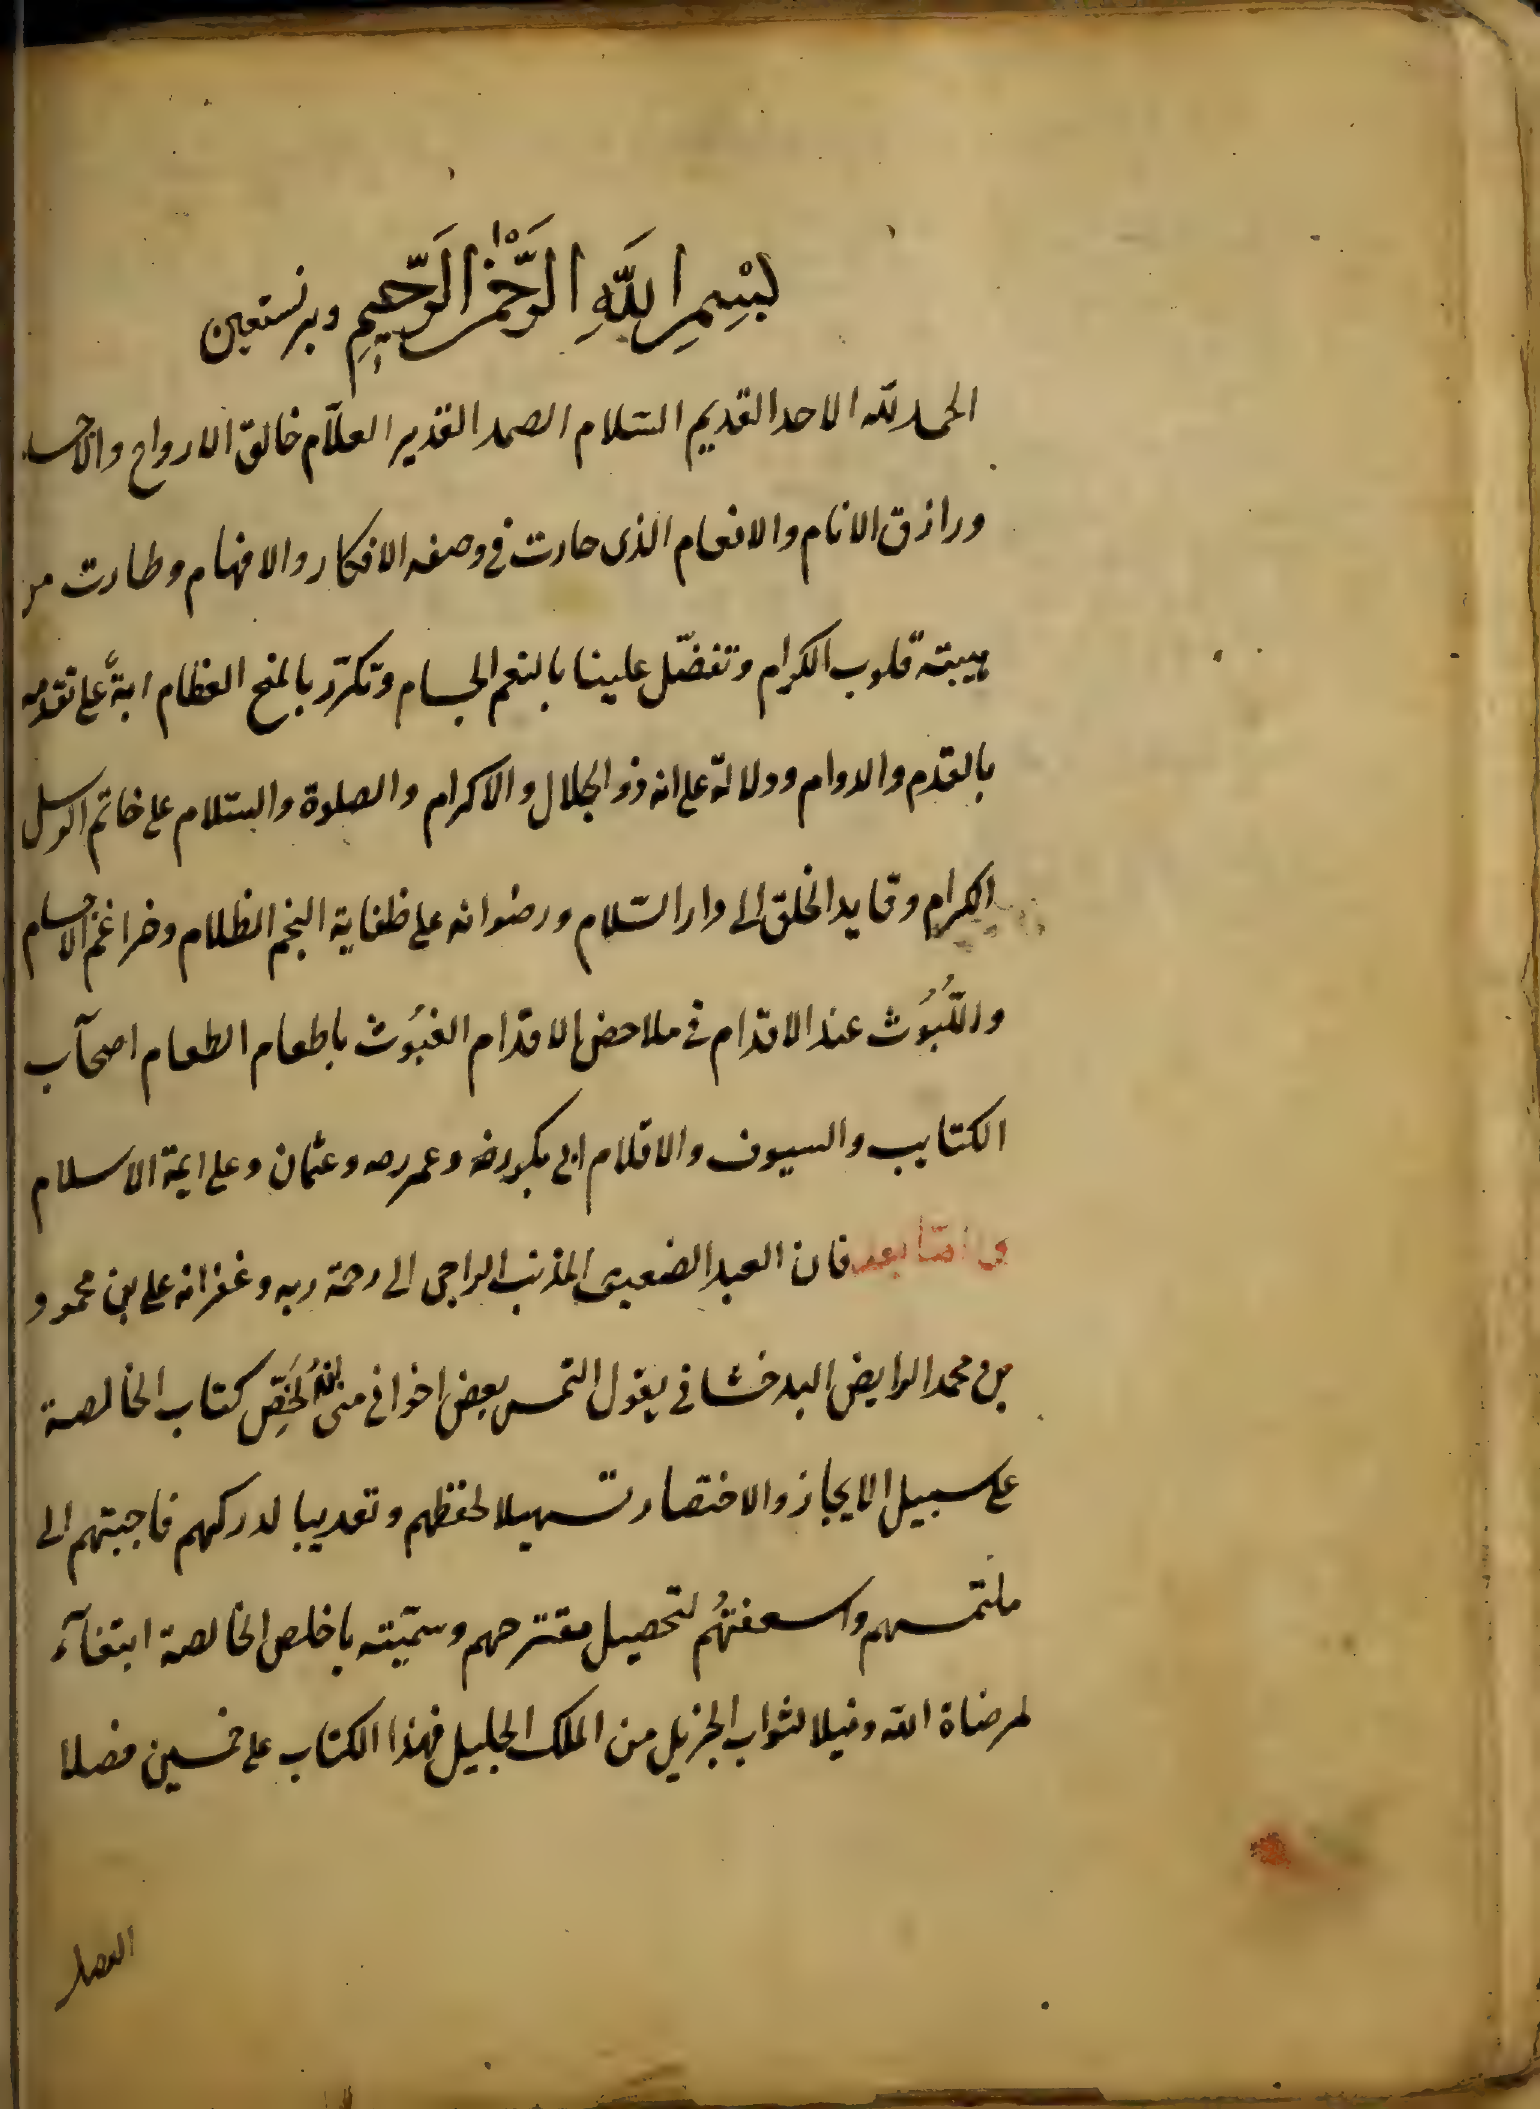 بِسْمِ اللَّهِ الرَّحْمٰنِ الرَّحِيمِ وبه نستعين
الحمد لله الاحد القديم السّلام الصمد القدير العلّام خالق الارواح والاجسا
ورازق الانام والانعام الذى حارت فى وصفه الافكار والافهام وطارت من
هيبته قلوب الكرام وتفضّل علينا بالنعم الجسام وتكرّر بالمنح العظام على تقدمه
بالقدم والدوام ودلالة على انه ذو الجلال والاكرام والصلوة والسّلام على خاتم الرسل
الكرام وقايد الخلق الى دار السّلام ورضوانه على الظلام
عند الاقدام فى الاقدام الغيُوث باطعام الطعام اصحآب
الكتايب والسيوف والاقلام ابى بكر رضه وعمر رضه وعثمان وعلى ايمة الاسلام
و امّا بعد فان العبد الضعيف المذنب الراجى الى رحمة ربه وغفرانه على بن محمود
بن محمد الرايض البدخشانى يقول التمس بعض اخوانى منى لُخِّص كتاب الخالصة
على سبيل الايجاز والاختصار تسهيلا لحفظهم وتقريبا لدركهم فاجبتهم الى
ملتمسهم واسعفتهُم لتحصيل مقترحهم وسمّيته باخلص الخالصة ابتغآء
لمرضاة الله ونيلا لثواب الجزيل من الملك الجليل فهذا الكتاب على خمسين فصلا
الفصل